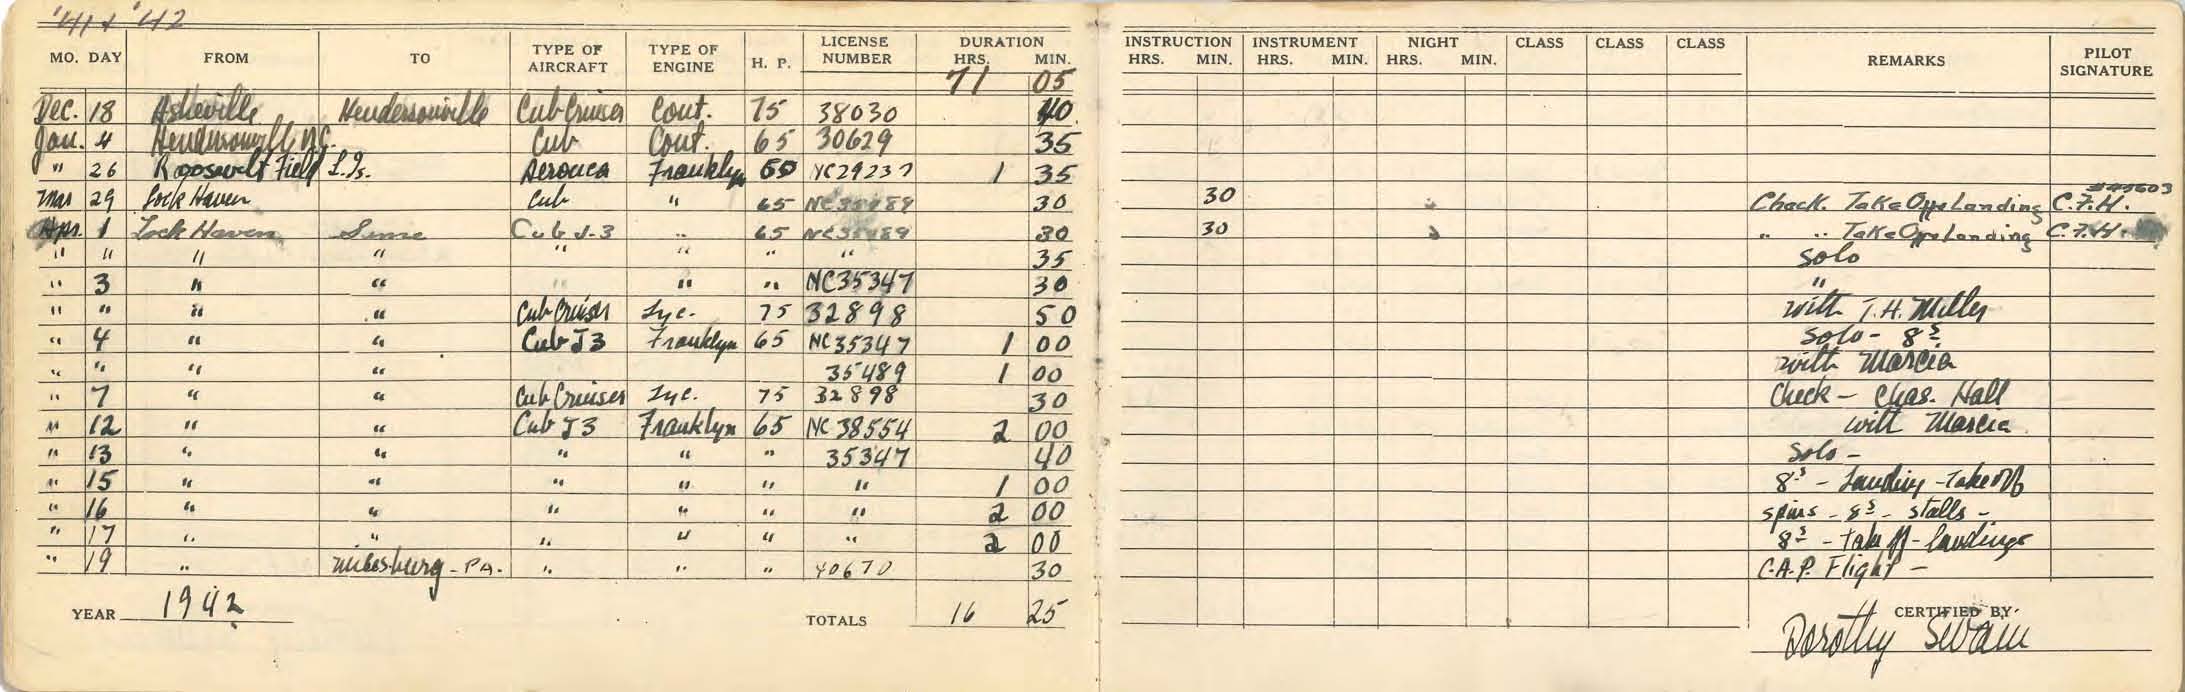 '41 & '42
MO. DAY FROM TO TYPE OF AIRCRAFT TYPE OF ENGINE H. P. LICENSE NUMBER DURATION HRS. MIN. INSTRUCTION HRS. MIN. INSTRUMENT HRS. MIN. NIGHT HRS. MIN. CLASS CLASS CLASS REMARKS PILOT SIGNATURE
71 05
Dec. 18 Asheville Hendersonville Cub Cruiser Cont. 75 38030 40
Jan. 4 Hendersonville N.C. Cub Cont. 65 30629 35
" 26 Roosevelt Field L.Is. Aeronca Franklyn NC29237 1 35
Mar 29 Lock Haven Cub " 65 30 30 Check. Take Offs Landing C.F.H.
Apr. 1 Lock Haven Same Cub J-3 " 65 30 30 " " Take Offs Landing C.F.H.
" " " " " " " " 35 Solo
" 3 " " " " " NC35347 30 "
" " " " Cub Cruiser Lyc. 75 32898 50 with T.H. Miller
" 4 " " Cub J3 Franklyn 65 NC35347 1 00 Solo - 8s
" " " " 35489 1 00 with Marcia
" 7 " " Cub Cruiser Lyc. 75 32898 30 Check - Chas. Hall
" 12 " " Cub J3 Franklyn 65 NC 38554 2 00 with Marcia
" 13 " " " " " 35347 40 Solo -
" 15 " " " " " " 1 00 8s - Landing - Takeoff
" 16 " " " " " " 2 00 spins - 8s - stalls -
" 17 " " " " " " 2 00 8s - Take off - landings
" 19 " Milesburg - PA. " " " 40670 30 C.A.P. Flight -
YEAR 1942 TOTALS 16 25 CERTIFIED BY
Dorothy Swain